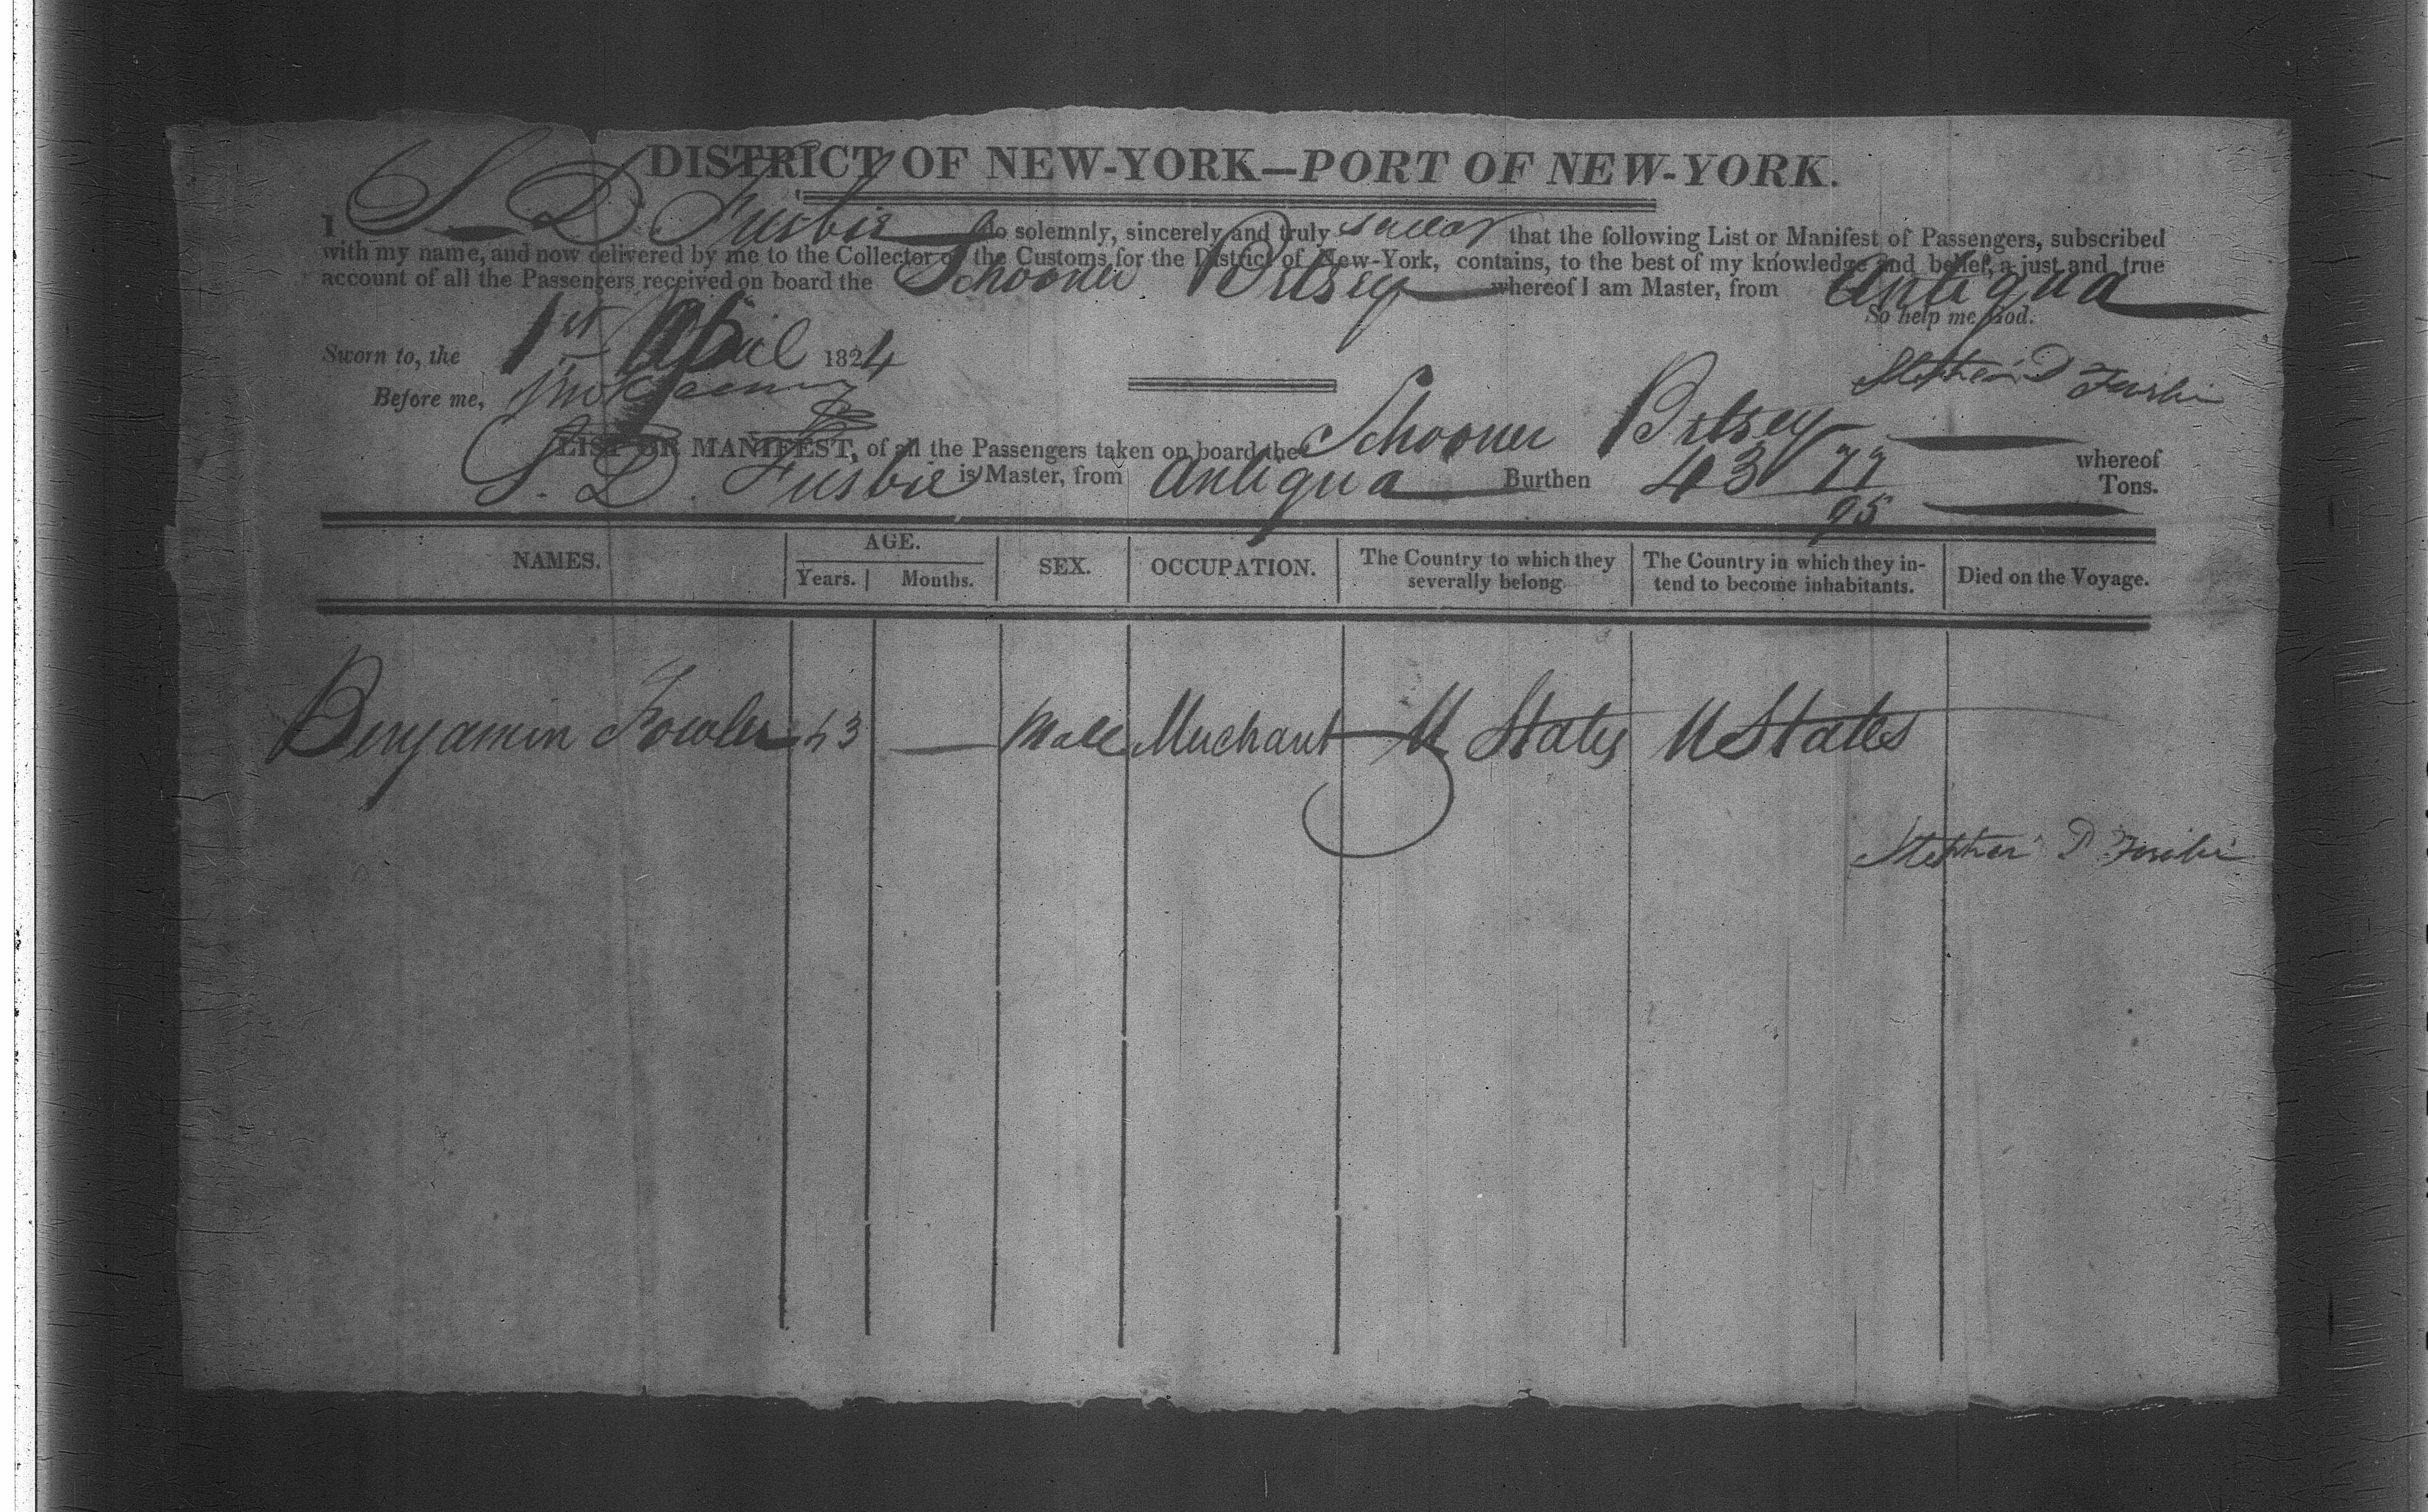 DISTRICT OF NEW-YORK—PORT OF NEW-YORK.
I S D Fusbie do solemnly, sincerely and truly swear that the following List or Manifest of Passengers, subscribed
with my name, and now delivered by me to the Collector of the Customs for the District of New-York, contains, to the best of my knowledge and belief, a just and true
account of all the Passengers received on board the Schooner Betsey whereof I am Master, from Antigua
So help me God.
Sworn to, the 1st April 1824
Stephen D
Before me,
LIST OR MANIFEST, of all the Passengers taken on board the Schooner Betsey whereof
S. D. Fusbie is Master, from Antigua Burthen 43 77/95 Tons.
NAMES. AGE. Years. Months. SEX. OCCUPATION. The Country to which they severally belong. The Country in which they intend to become inhabitants. Died on the Voyage.
Benjamin Fowler 43 — Male Merchant U States U States
Stephen D